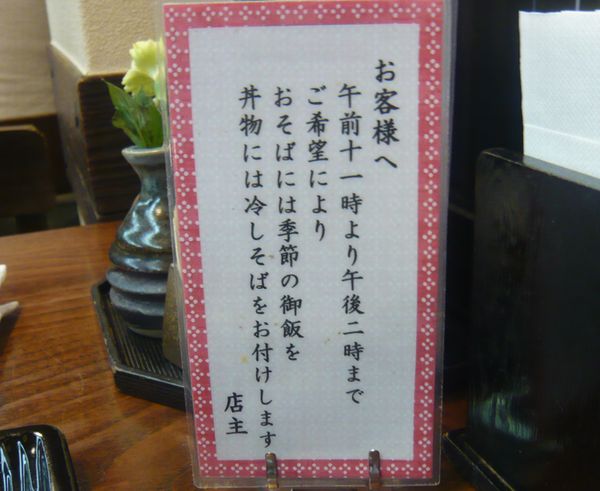 お客様へ
午前十一時より午後二時まで
ご希望により
おそばには季節の御飯を
丼物には冷しそばをお付けします
店主